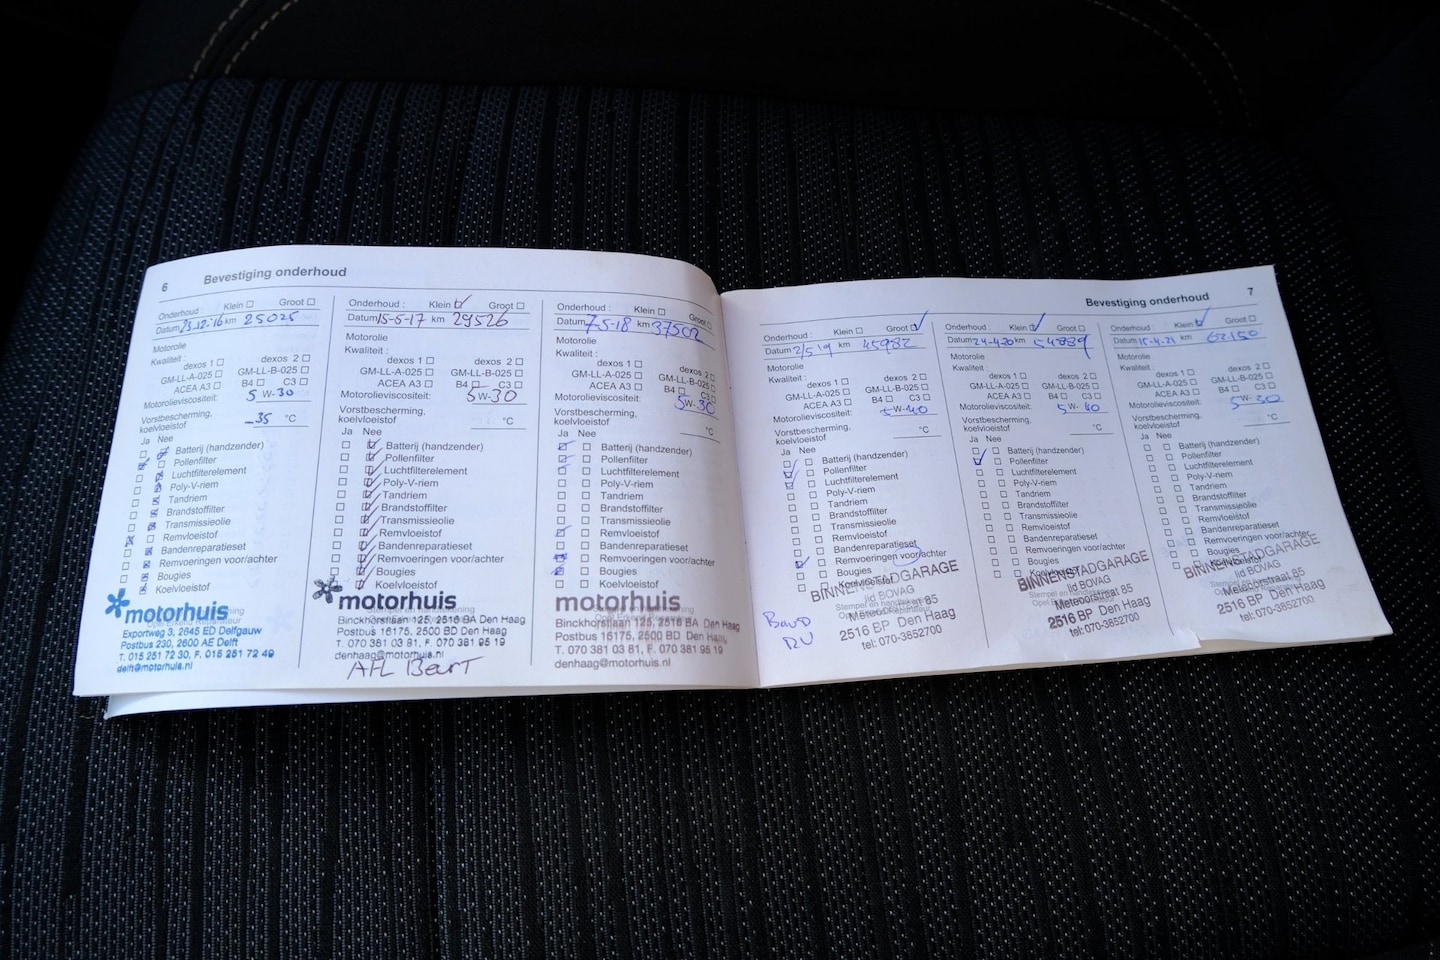 6 Bevestiging onderhoud
Klein Groot
Datum 23-12-'16 km 25025
Motorolie
Kwaliteit :
dexos 1 dexos 2
GM-LL-A-025 GM-LL-B-025
ACEA A3 B4 C3
Motorolieviscositeit: 5 W-30
Vorstbescherming,
koelvloeistof -35 °C
Ja Nee
Batterij (handzender)
Pollenfilter
Luchtfilterelement
Poly-V-riem
Tandriem
Brandstoffilter
Transmissieolie
Remvloeistof
Bandenreparatieset
Remvoeringen voor/achter
Bougies
Koelvloeistof
motorhuis
Exportweg 3, 2645 ED Delfgauw
Postbus 230, 2600 AE Delft
T. 015 251 72 30, F. 015 251 72 49
delft@motorhuis.nl
Onderhoud : Klein Groot
Datum 15-5-17 km 29526
Motorolie
Kwaliteit :
dexos 1 dexos 2
GM-LL-A-025 GM-LL-B-025
ACEA A3 B4 C3
Motorolieviscositeit: 5 W-30
Vorstbescherming,
koelvloeistof °C
Ja Nee
Batterij (handzender)
Pollenfilter
Luchtfilterelement
Poly-V-riem
Tandriem
Brandstoffilter
Transmissieolie
Remvloeistof
Bandenreparatieset
Remvoeringen voor/achter
Bougies
Koelvloeistof
motorhuis
Binckhorstlaan 125, 2516 BA Den Haag
Postbus 16175, 2500 BD Den Haag
T. 070 381 03 81, F. 070 381 95 19
denhaag@motorhuis.nl
AFL Beurt
Onderhoud : Klein Groot
Datum 7-5-18 km 37502
Motorolie
Kwaliteit :
dexos 1 dexos 2
GM-LL-A-025 GM-LL-B-025
ACEA A3 B4 C3
Motorolieviscositeit: 5 W-30
Vorstbescherming,
koelvloeistof °C
Ja Nee
Batterij (handzender)
Pollenfilter
Luchtfilterelement
Poly-V-riem
Tandriem
Brandstoffilter
Transmissieolie
Remvloeistof
Bandenreparatieset
Remvoeringen voor/achter
Bougies
Koelvloeistof
motorhuis
Binckhorstlaan 125, 2516 BA Den Haag
Postbus 16175, 2500 BD Den Haag
T. 070 381 03 81, F. 070 381 95 19
denhaag@motorhuis.nl
Bevestiging onderhoud 7
Onderhoud : Klein Groot
Datum 2/5 19 km 45982
Motorolie
Kwaliteit :
dexos 1 dexos 2
GM-LL-A-025 GM-LL-B-025
ACEA A3 B4 C3
Motorolieviscositeit: 5 W-40
Vorstbescherming,
koelvloeistof °C
Ja Nee
Batterij (handzender)
Pollenfilter
Luchtfilterelement
Poly-V-riem
Tandriem
Brandstoffilter
Transmissieolie
Remvloeistof
Bandenreparatieset
Remvoeringen voor/achter
Bougies
Koelvloeistof
BINNENSTADGARAGE
lid BOVAG
Meteoorstraat 85
2516 BP Den Haag
tel: 070-3852700
Onderhoud : Klein Groot
Datum 24-4-20 km 54889
Motorolie
Kwaliteit :
dexos 1 dexos 2
GM-LL-A-025 GM-LL-B-025
ACEA A3 B4 C3
Motorolieviscositeit: 5 W-40
Vorstbescherming,
koelvloeistof °C
Ja Nee
Batterij (handzender)
Pollenfilter
Luchtfilterelement
Poly-V-riem
Tandriem
Brandstoffilter
Transmissieolie
Remvloeistof
Bandenreparatieset
Remvoeringen voor/achter
Bougies
BINNENSTADGARAGE
lid BOVAG
Meteoorstraat 85
2516 BP Den Haag
tel: 070-3852700
Onderhoud : Klein Groot
Datum 15-4-21 km 62150
Motorolie
Kwaliteit :
dexos 1 dexos 2
GM-LL-A-025 GM-LL-B-025
ACEA A3 B4 C3
Motorolieviscositeit: 5 W-30
Vorstbescherming,
koelvloeistof °C
Ja Nee
Batterij (handzender)
Pollenfilter
Luchtfilterelement
Poly-V-riem
Tandriem
Brandstoffilter
Transmissieolie
Remvloeistof
Bandenreparatieset
Remvoeringen voor/achter
Bougies
BINNENSTADGARAGE
lid BOVAG
Meteoorstraat 85
2516 BP Den Haag
tel: 070-3852700